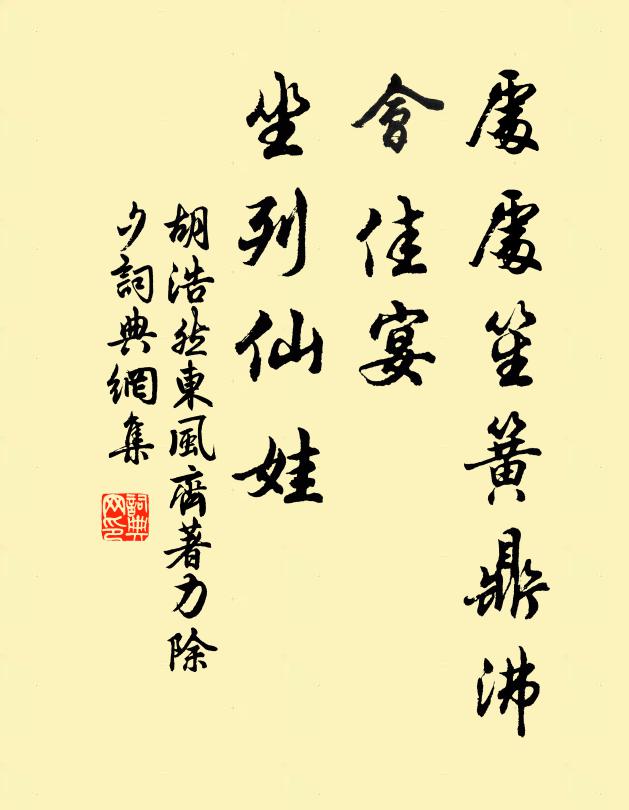 處處笙簧鼎沸
會佳宴
坐列仙娃
胡浩然東風齊著力除
夕詞典網集
詞典網印